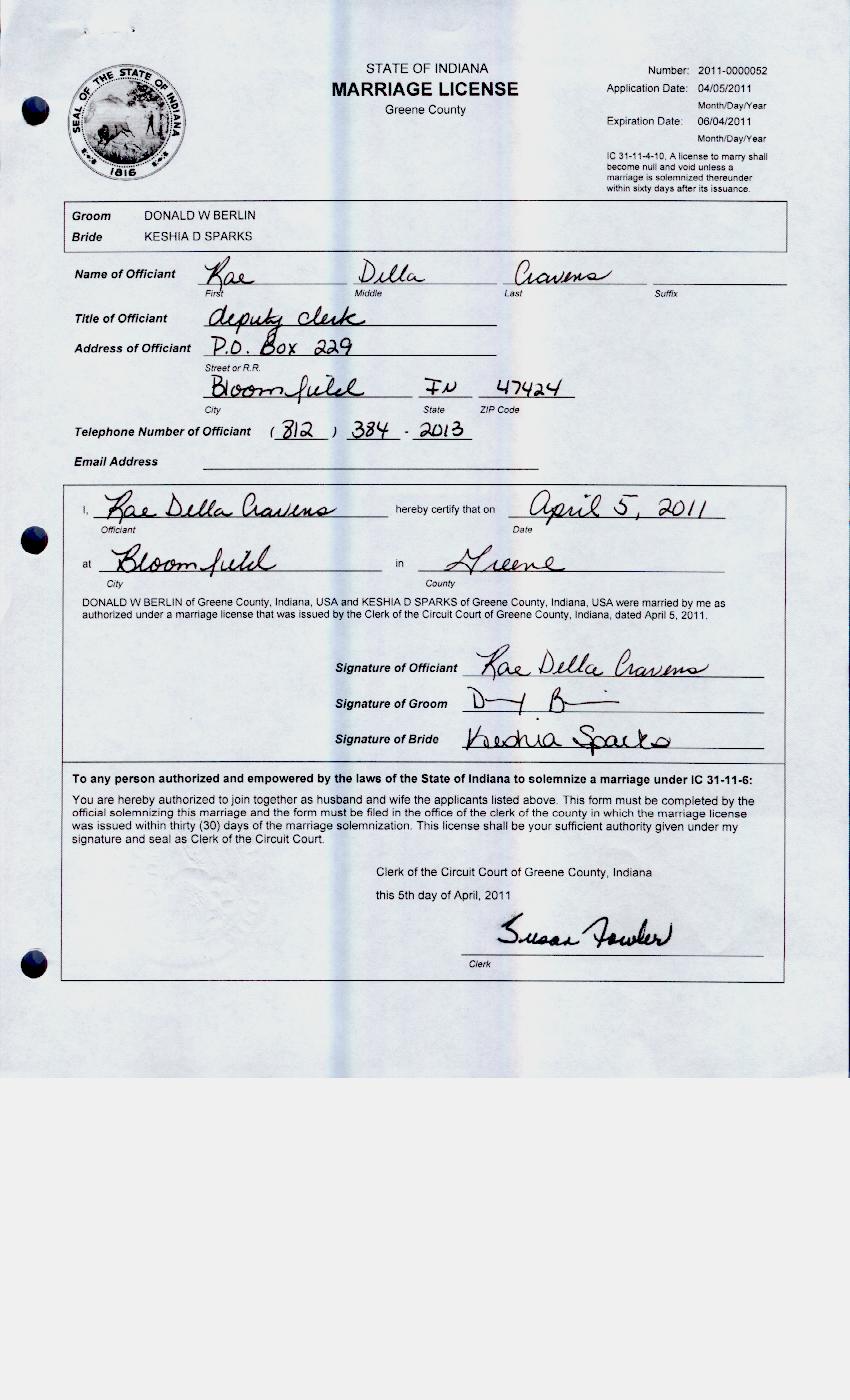 SEAL OF THE STATE OF INDIANA
1816
STATE OF INDIANA
MARRIAGE LICENSE
Greene County
Number: 2011-0000052
Application Date: 04/05/2011
Month/Day/Year
Expiration Date: 06/04/2011
Month/Day/Year
IC 31-11-4-10, A license to marry shall
become null and void unless a
marriage is solemnized thereunder
within sixty days after its issuance.
Groom DONALD W BERLIN
Bride KESHIA D SPARKS
Name of Officiant Rae Della Cravens
First Middle Last Suffix
Title of Officiant deputy clerk
Address of Officiant P.O. Box 229
Street or R.R.
Bloomfield IN 47424
City State ZIP Code
Telephone Number of Officiant (812) 384 - 2013
Email Address
I, Rae Della Cravens hereby certify that on April 5, 2011
Officiant Date
at Bloomfield in Greene
City County
DONALD W BERLIN of Greene County, Indiana, USA and KESHIA D SPARKS of Greene County, Indiana, USA were married by me as
authorized under a marriage license that was issued by the Clerk of the Circuit Court of Greene County, Indiana, dated April 5, 2011.
Signature of Officiant Rae Della Cravens
Signature of Groom
Signature of Bride Keshia Sparks
To any person authorized and empowered by the laws of the State of Indiana to solemnize a marriage under IC 31-11-6:
You are hereby authorized to join together as husband and wife the applicants listed above. This form must be completed by the
official solemnizing this marriage and the form must be filed in the office of the clerk of the county in which the marriage license
was issued within thirty (30) days of the marriage solemnization. This license shall be your sufficient authority given under my
signature and seal as Clerk of the Circuit Court.
Clerk of the Circuit Court of Greene County, Indiana
this 5th day of April, 2011
Susan Fowler
Clerk